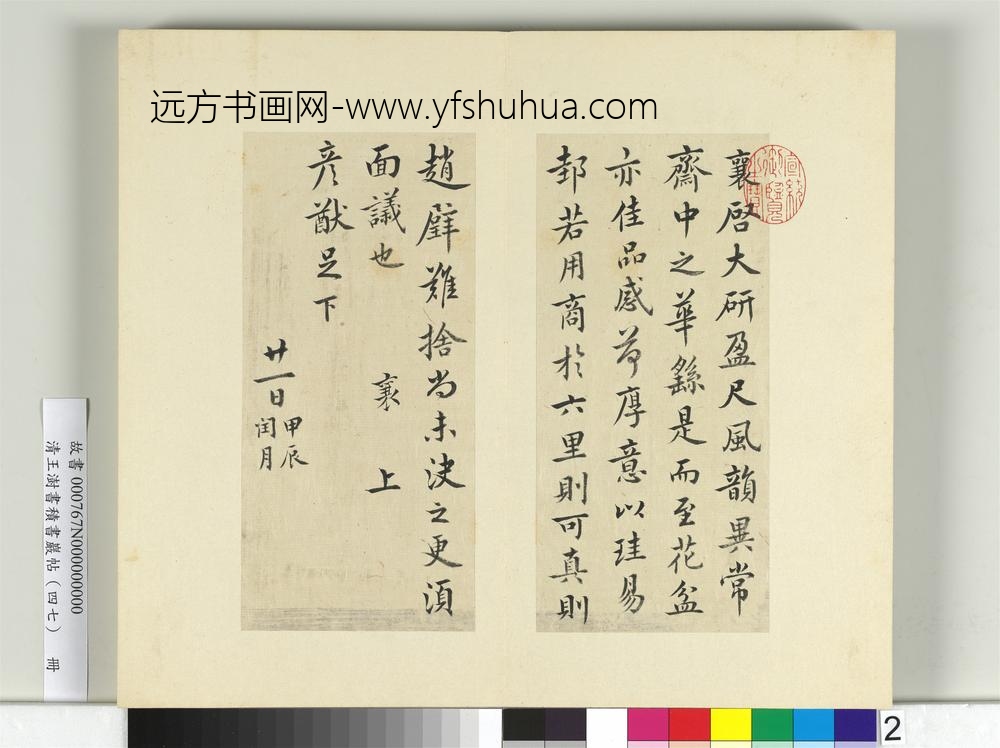 远方书画网-www.yfshuhua.com
襄啓大研盈尺風韻異常
齋中之華繇是而至花盆
亦佳品感荷厚意以珪易
邽若用商於六里則可真則
趙璧難捨尚未決之更須
面議也 襄上
彦猷足下
廿一日甲辰
閏月
宣統御覽之寶
故書 000767N000000000
清王澍書積書巖帖(四七) 冊
2